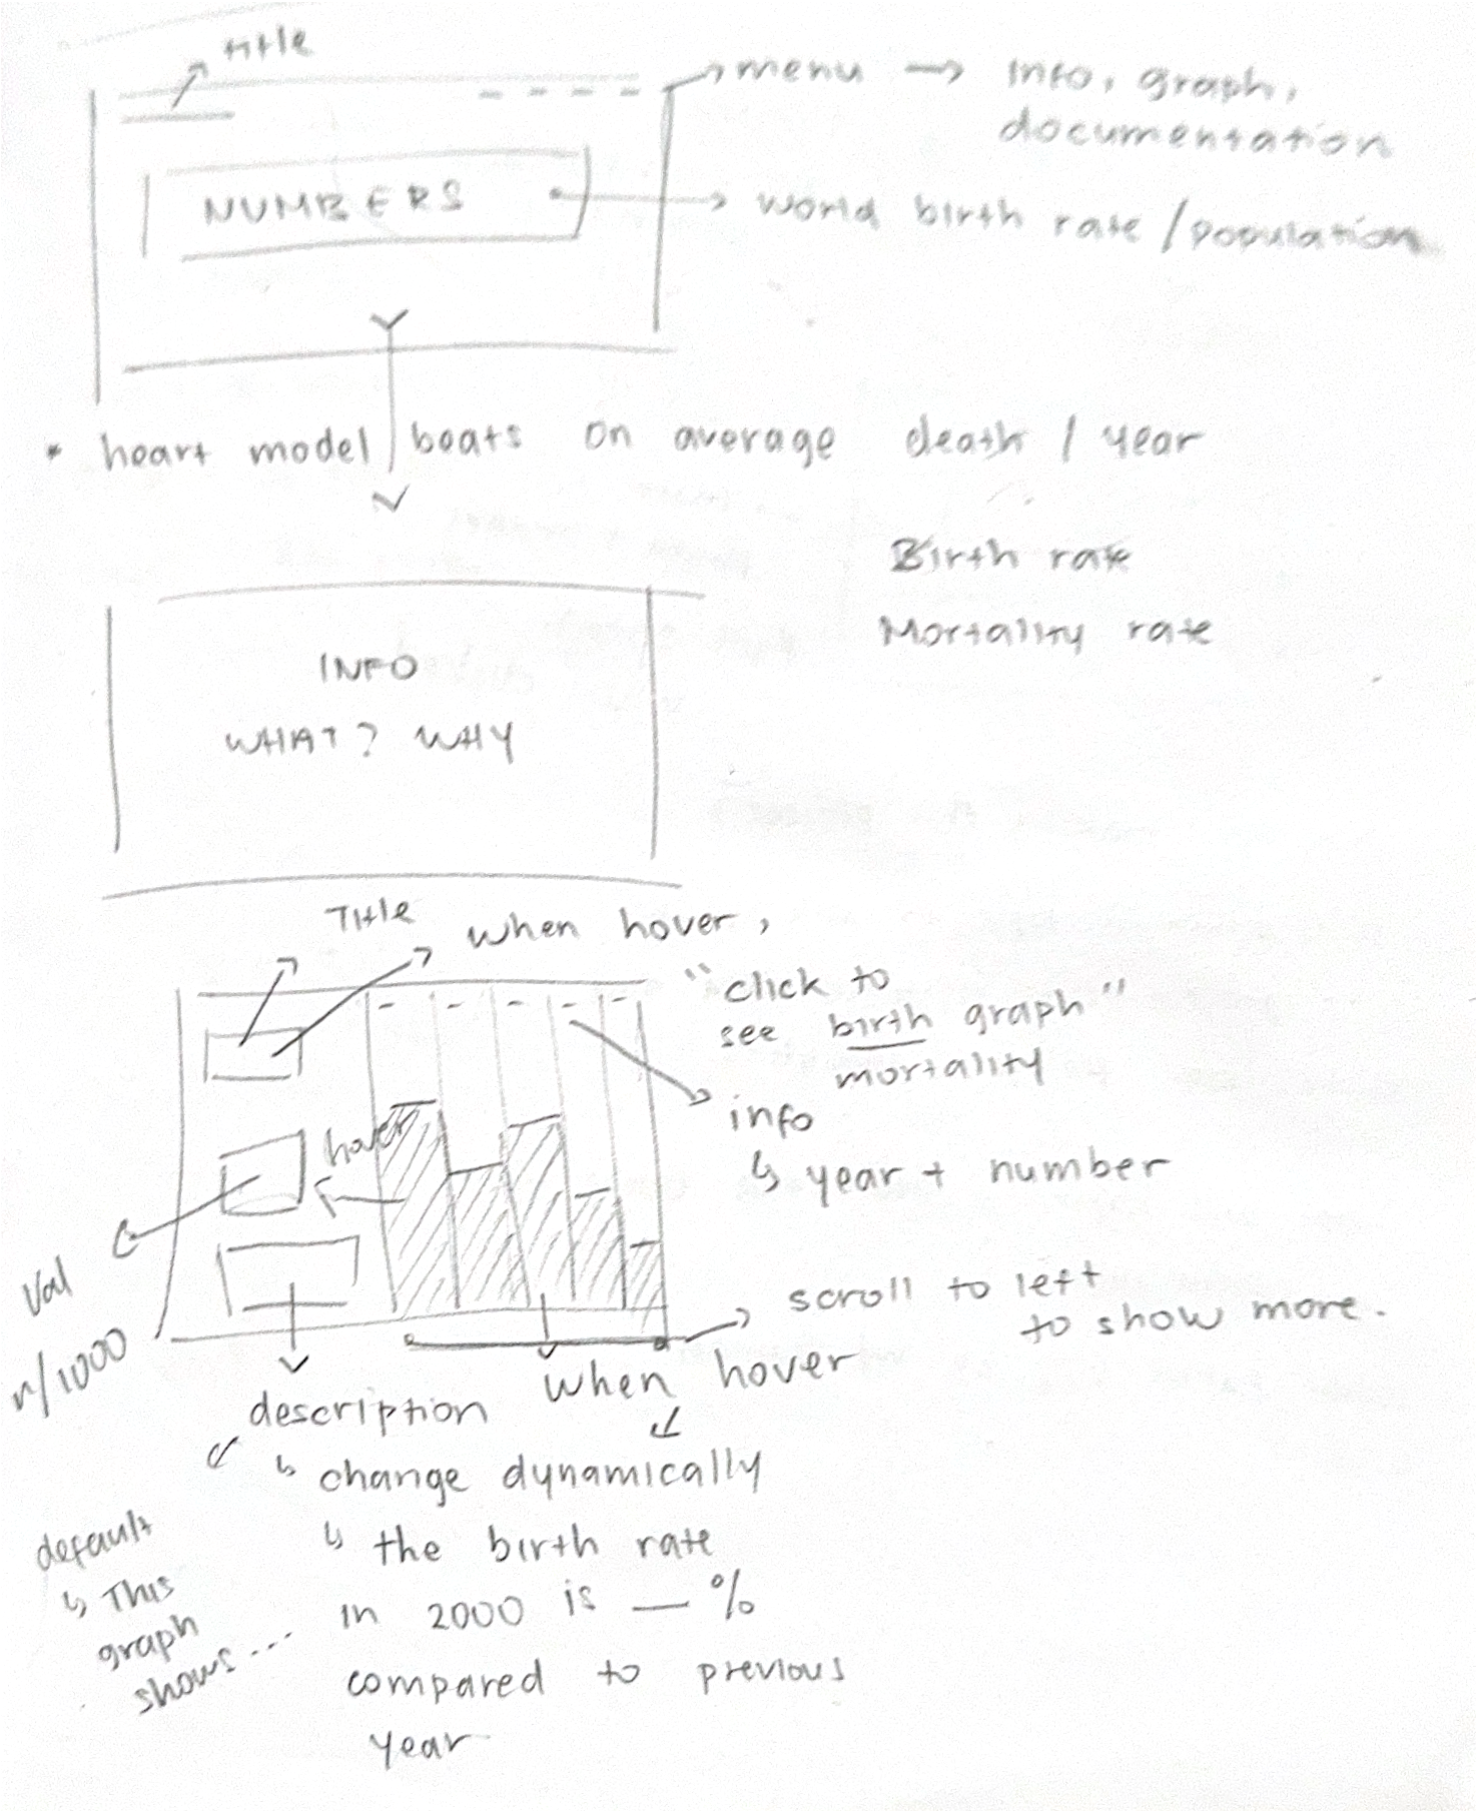 title
menu → info, graph,
documentation
NUMBERS
world birth rate / population
* heart model beats on average death / year
Birth rate
Mortality rate
INFO
WHAT? WHY
Title
when hover,
"click to
see birth graph"
mortality
info
↳ year + number
hover
Val
r/1000
scroll to left
to show more.
when hover
description
↳ change dynamically
↳ the birth rate
in 2000 is — %
compared to previous
year
default
↳ This
graph
shows...